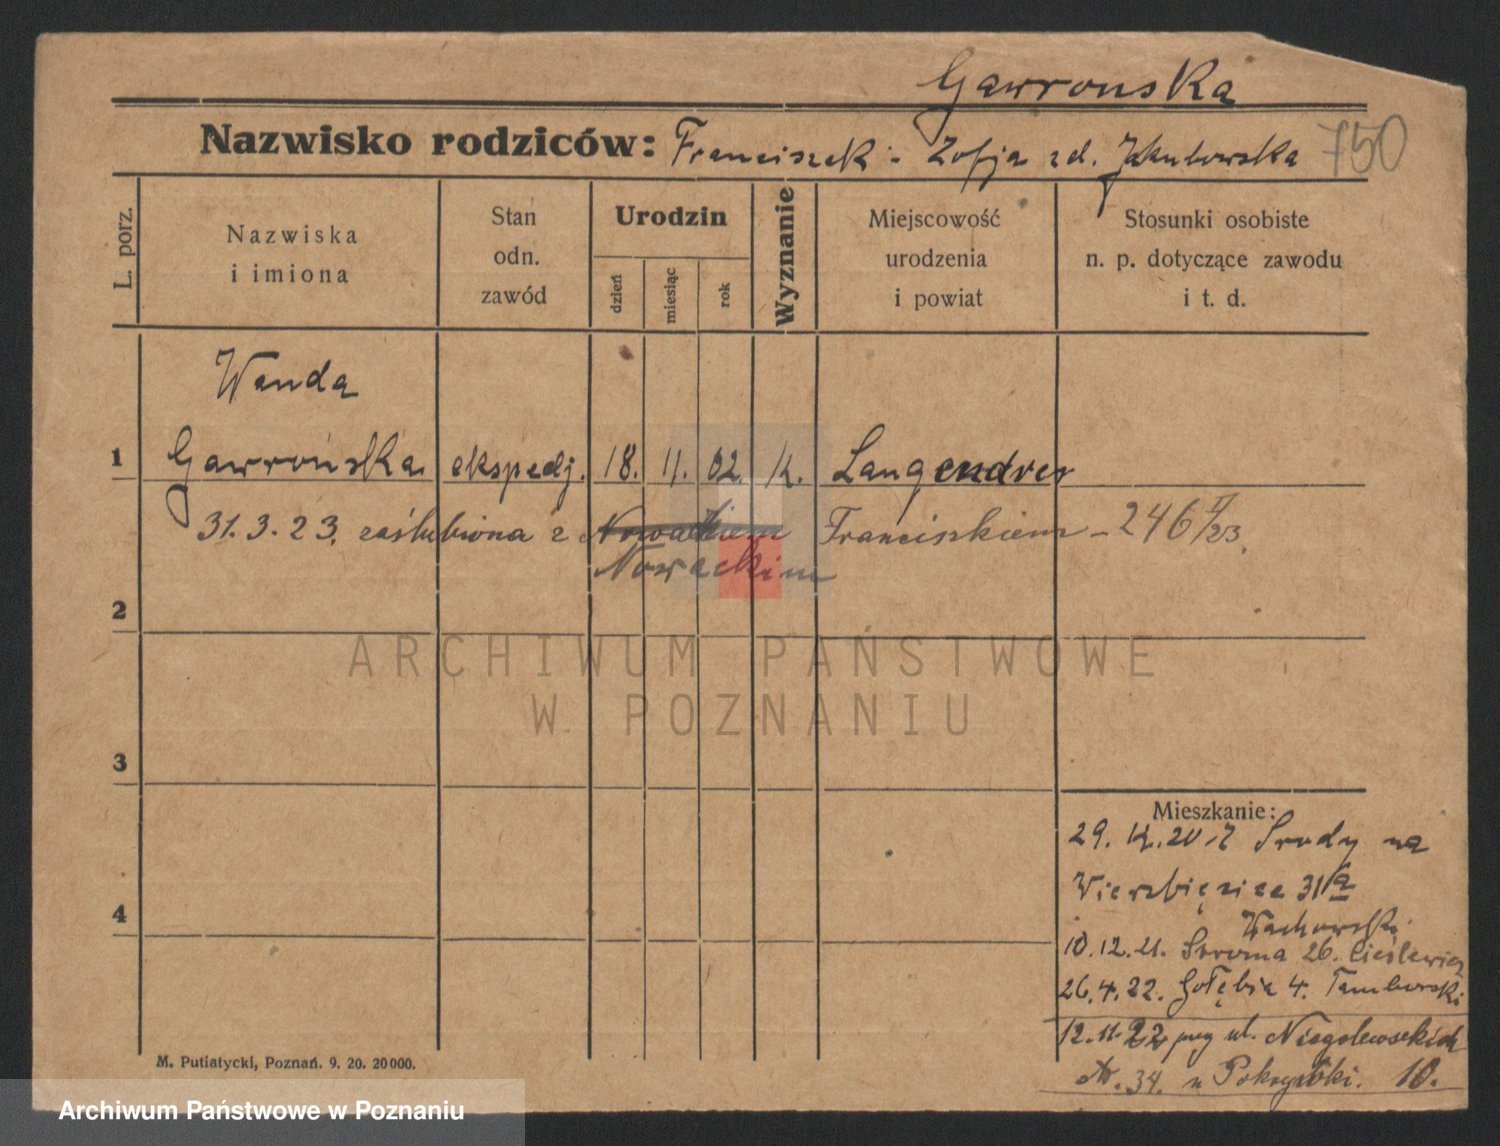 Gawronska
Nazwisko rodziców: Franciszek - Zofja zd. Jakubowska 750
L. porz.
Nazwiska
i imiona
Stan
odn.
zawód
Urodzin
dzień
miesiąc
rok
Wyznanie
Miejscowość
urodzenia
i powiat
Stosunki osobiste
n. p. dotyczące zawodu
i t. d.
Wanda
1 Gawrońska ekspedj. 18. 11. 02. k. Langendres
31.3.23. zaślubiona z Nowakiem Franciszkiem - 246/23.
Nowackim
2
ARCHIWUM PAŃSTWOWE
W POZNANIU
3
Mieszkanie:
29. 20 z Środy na
Wierzbięcice 31a
4
Wachowski
10.12.21. Stroma 26. Cieślewicz
26.4.22. Gołębia 4. Tamborski
12.11.22 przy ul. Niegolewskich
Nr. 34. u Pokrywki. 10.
M. Putiatycki, Poznań. 9. 20. 20000.
Archiwum Państwowe w Poznaniu